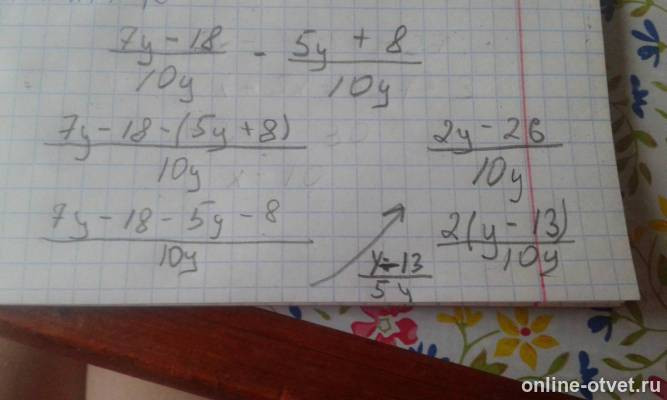 7y - 18 / 10y - 5y + 8 / 10y
7y - 18 - (5y + 8) / 10y
7y - 18 - 5y - 8 / 10y
2y - 26 / 10y
2(y - 13) / 10y
y - 13 / 5y
online-otvet.ru